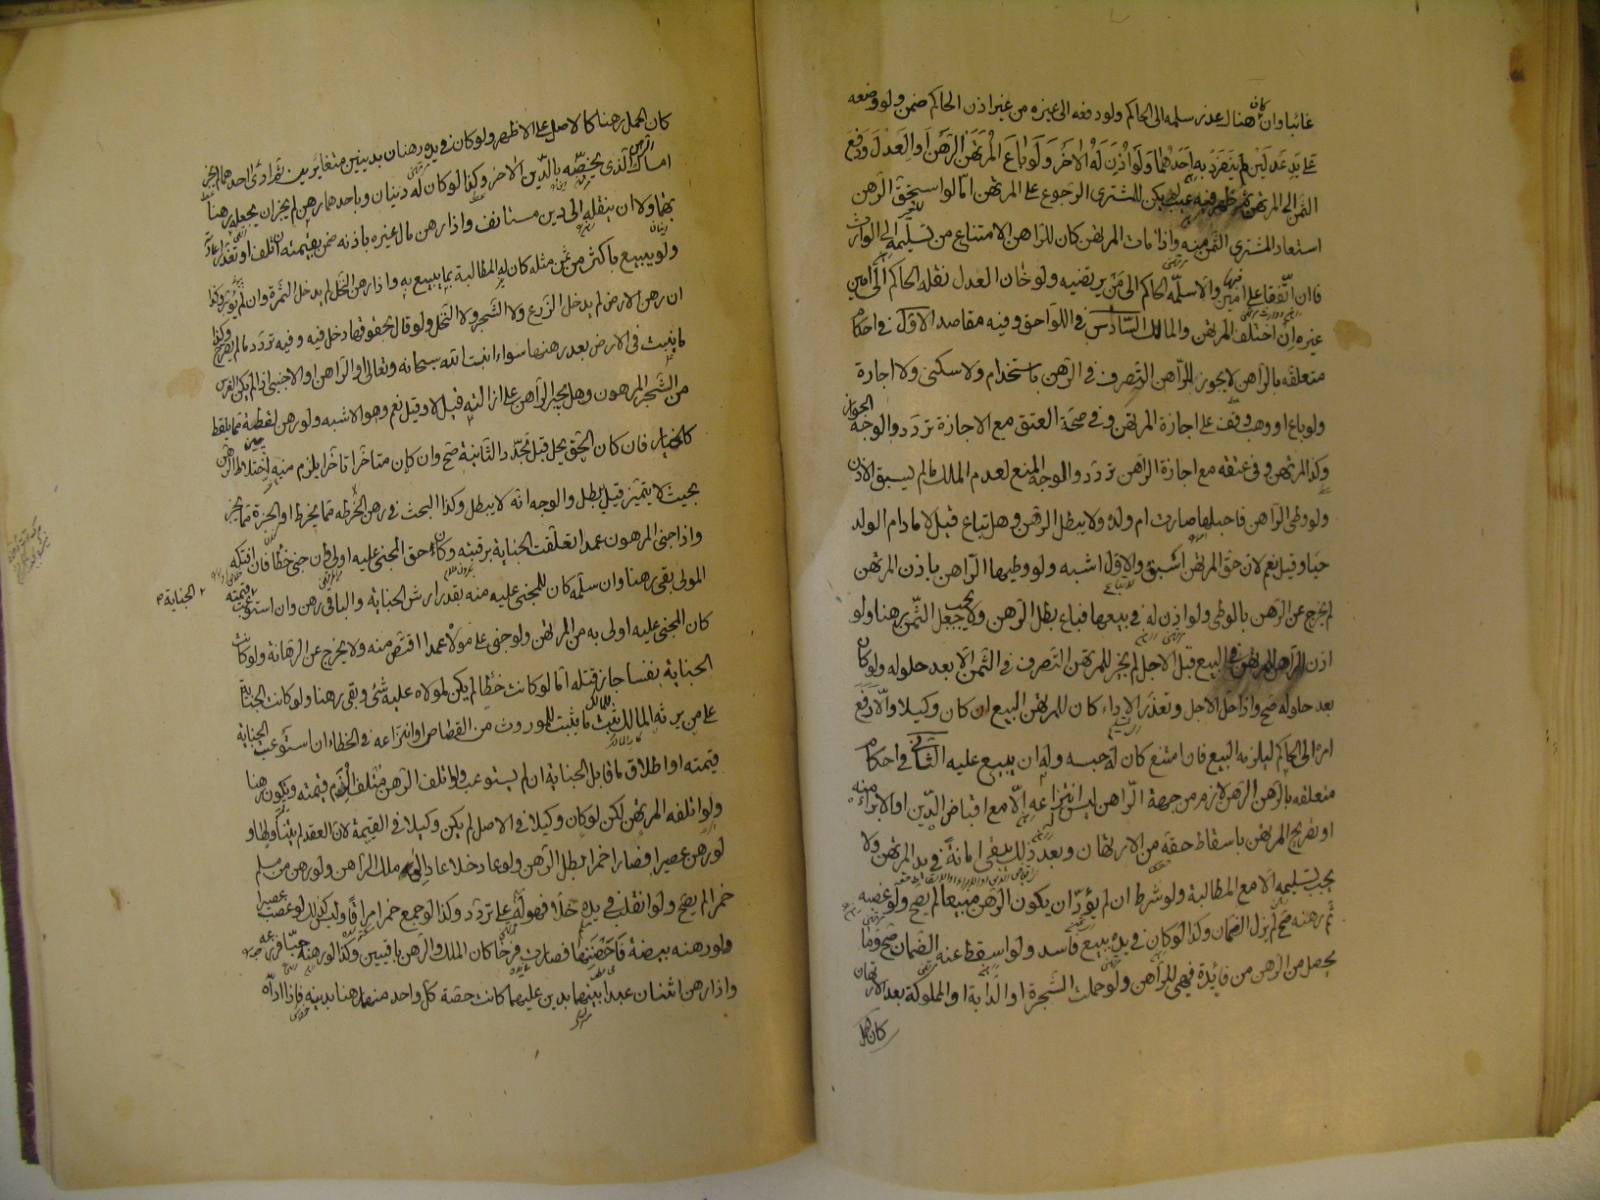 غائبا وان كان هناك عذر سلمه الى الحاكم ولو دفعه الى غيره من غير اذن الحاكم ضمن ولو وضعه
على يد عدلين لم ينفرد به احدهما ولو اذن له الاخر ولو باع المرتهن الرهن او العدل ودفع
الثمن الى المرتهن ثم ظهر فيه عيب لم يكن للمشتري الرجوع على المرتهن امّا لو استحق الرهن
استعاد المشتري الثمن منه واذا مات المرتهن كان للراهن الامتناع من تسليمه الى الوارث
فان اتّفقا على امين والا سلمه الحاكم الى من يرتضيه ولو خان العدل نقله الحاكم الى امين
غيره ان اختلف المرتهن والمالك السّادس في اللواحق وفيه مقاصد الاول في احكام
متعلقه بالراهن لا يجوز للراهن التصرف في الرهن باستخدام ولا سكنى ولا اجارة
ولو باع او وهب وقف على اجازة المرتهن وفي صحة العتق مع الاجازة تردّد والوجه الجواز
وكذا المرتهن وفي عتقه مع اجازة الراهن تردّد والوجه المنع لعدم الملك ما لم يسبق الاذن
ولو وطى الراهن فاحبلها صارت ام ولده ولا يبطل الرهن وهل تباع قيل لا ما دام الولد
حيا وقيل نعم لان حق المرتهن اسبق والاول اشبه ولو وطيها الراهن باذن المرتهن
لم يخرج عن الرهن بالوطى ولو اذن له في بيعها فباع بطل الرهن ولا يجب جعل الثمن رهنا ولو
اذن الراهن للمرتهن في البيع قبل الاجل لم يجز للمرتهن التصرف في الثمن الا بعد حلوله ولو كان
بعد حلوله صح واذا حل الاجل وتعذر الاداء كان للمرتهن البيع ان كان وكيلا والّا رفع
امره الى الحاكم ليلزمه البيع فان امتنع كان له حبسه وله ان يبيع عليه الثاني في احكام
متعلقه بالرهن الرهن لازم من جهة الراهن ليس انتزاعه الّا مع اقباض الدّين او الابراء منه
او تصريح المرتهن باسقاط حقه من الارتهان وبعد ذلك يبقى امانة في يد المرتهن ولا
يجب تسليمه الا مع المطالبة ولو شرط ان لم يؤدّ ان يكون الرهن مبيعا لم يصح ولو غصبه
ثم رهنه صح لم يزل الضمان وكذا لو كان في يده ببيع فاسد ولو اسقط عنه الضمان صح وما
يحصل من الرهن من فائدة فهي للراهن ولو حملت الشجرة او الدابة او المملوكة بعد الارتهان
كان الحمل
كان الحمل رهنا كالاصل على الاظهر ولو كان في يده رهنان بدينين متغايرين ثم ادى احدهما لم يجز
امساك الرهن الذي يختصّه بالدّين الاخر وكذا لو كان له دينان وباحدهما رهن لم يجز ان يجعله رهنا
بهما ولا ان ينقله الى دين مستانف واذا رهن مال غيره باذنه ضمن بقيمته ان تلف او تعذر اعادته
ولو يبيع باكثر من ثمن مثله كان له المطالبة بما يبيع به واذا رهن النخل لم يدخل الثمرة وان لم تؤبر وكذا
ان رهن الارض لم يدخل الزرع ولا الشجر ولا النخل ولو قال بحقوقها دخل فيه وفيه تردّد ما لم يصرح وكذا
ما ينبت في الارض بعد رهنها سواء انبت الله سبحانه وتعالى او الراهن او الاجنبي اذا لم يكن الغرس
من الشجر المرهون وهل يجبر الراهن على ازالته قيل لا وقيل نعم وهو الاشبه ولو رهن لقطة مما يلقط
كالخيار فان كان الحق يحل قبل تجدّد الثانية صح وان كان متاخرا تاخرا يلزم منه اختلاط الرهن
بحيث لا يتميّز قيل يبطل والوجه انه لا يبطل وكذا البحث في رهن الخرطة مما يخرط او الجزة مما يجز
واذا جنى المرهون عمدا تعلقت الجناية برقبته وكان حق المجني عليه اولى وان جنى خطأ فان افتكه
المولى بقى رهنا وان سلمه كان للمجني عليه منه بقدر ارش الجناية والباقي رهن وان استوعبت قيمته
الجناية
كان المجني عليه اولى به من المرتهن ولو جنى على مولاه عمدا اقتص منه ولا يخرج عن الرهانة ولو كانت
الجناية نفسا جاز قتله امّا لو كانت خطأ لم يكن لمولاه عليه شئ وبقى رهنا ولو كانت الجناية
على من يرثه المالك ثبت للمالك ما يثبت للموروث من القصاص او انتزاعه في الخطاء ان استوعبت الجناية
قيمته او اطلاق ما قابل الجناية ان لم يستوعب ولو اتلف الرهن متلف الزم قيمته ويكون رهنا
ولو اتلفه المرتهن لكن لو كان وكيلا في الاصل لم يكن وكيلا في القيمة لان العقد لم يتناولها و
لو رهن عصيرا فصار خمرا بطل الرهن ولو عاد خلا عاد الى ملك الراهن ولو رهن من مسلم
خمرا لم يصح ولو انقلب في يده خلّا فهو له على تردّد وكذا لو جمع خمرا مراقا وليس كذلك لو غصب عصيرا
ولو رهنه بيضة فاحضنها فصارت فرخا كان الملك والرهن باقيين وكذا لو رهنه حبّا فزرعه
واذا رهن اثنان عبدا بينهما بدين عليهما كانت حصة كل واحد منهما رهنا بدينه فاذا ادّاه